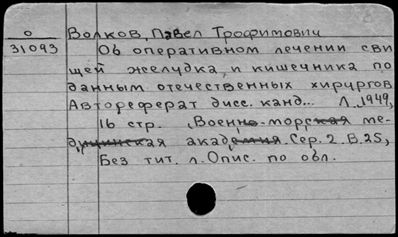 О
31093
Волков, Павел Трофимович
Об оперативном лечении сви
щей желудка и кишечника по
данным отечественных хирургов
Автореферат дисс. канд... Л., 1949,
16 стр. (Военно-морская ме-
дицинская академия. Сер. 2. В. 25,
Без тит. л. Опис. по обл.